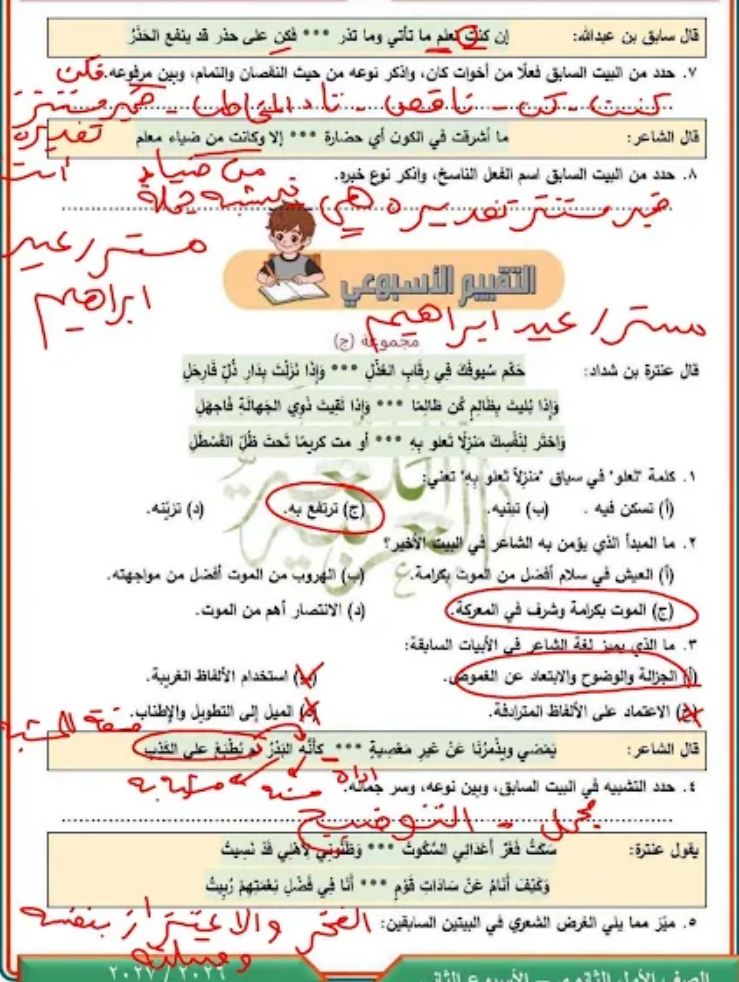 قال سابق بن عبدالله: إن كنت تعلم ما تأتي وما تذر *** فكن على حذر قد ينفع الحذر
٧. حدد من البيت السابق فعلًا من أخوات كان، واذكر نوعه من حيث النقصان والتمام، وبين مرفوعه. فكن
كنت - كن - ناقص - تاء المخاطب - ضمير مستتر
تقديره
أنت
قال الشاعر: ما أشرقت في الكون أي حضارة *** إلا وكانت من ضياء معلم
٨. حدد من البيت السابق اسم الفعل الناسخ، واذكر نوع خبره. من ضياء
ضمير مستتر تقديره هي شبه جملة
مستر/عيد
ابراهيم
التقييم الأسبوعي
مستر/عيد ابراهيم
مجموعة (ج)
قال عنترة بن شداد: حَكِّم سُيوفَكَ فِي رِقابِ العُذَّلِ *** وَإِذا نَزَلْتَ بِدَارِ ذُلٍّ فَارحَلِ
وَإِذا بُليتَ بِظالِمٍ كُن ظالِمًا *** وَإِذا لَقيتَ ذَوِي الجَهالَةِ فَاجهَلِ
وَاختَر لِنَفْسِكَ مَنزِلًا تَعلو بِهِ *** أو مت كريمًا تَحتَ ظِلِّ القَسْطَلِ
١. كلمة "تعلو" في سياق "مَنزِلاً تَعلو بِهِ" تعني:
(أ) تسكن فيه. (ب) تبنيه. (ج) ترتفع به. (د) تزيّنه.
٢. ما المبدأ الذي يؤمن به الشاعر في البيت الأخير؟
(أ) العيش في سلام أفضل من الموت بكرامة. (ب) الهروب من الموت أفضل من مواجهته.
(ج) الموت بكرامة وشرف في المعركة. (د) الانتصار أهم من الموت.
٣. ما الذي يميز لغة الشاعر في الأبيات السابقة:
(أ) الجزالة والوضوح والابتعاد عن الغموض. (ب) استخدام الألفاظ الغريبة.
(ج) الاعتماد على الألفاظ المترادفة. (د) الميل إلى التطويل والإطناب.
صفة المشبه
قال الشاعر: يَمْضي ويذْمرُنَا عَنْ غَيرِ مَعْصِيةٍ *** كأنَّه البَدْرُ لم يُطْبَعْ على الكَذب
٤. حدد التشبيه في البيت السابق، وبين نوعه، وسر جماله. أداة مشبه مشبه به
مجمل - التوضيح
يقول عنترة: سَكَتُّ فَغَرَّ أَعْدائي السُّكوتُ *** وَظَنُّوني لِأَهْلي قَدْ نَسِيتُ
وَكَيْفَ أَنامُ عَنْ سَاداتِ قَوْمٍ *** أَنا فِي فَضْلِ نِعْمَتِهِمْ رُبِيتُ
٥. ميّز مما يلي الغرض الشعري في البيتين السابقين: الفخر والاعتزاز بنفسه
وقبيلته
الصف الأول الثانوي – الأسبوع الثاني ٢٠٢٦ / ٢٠٢٧